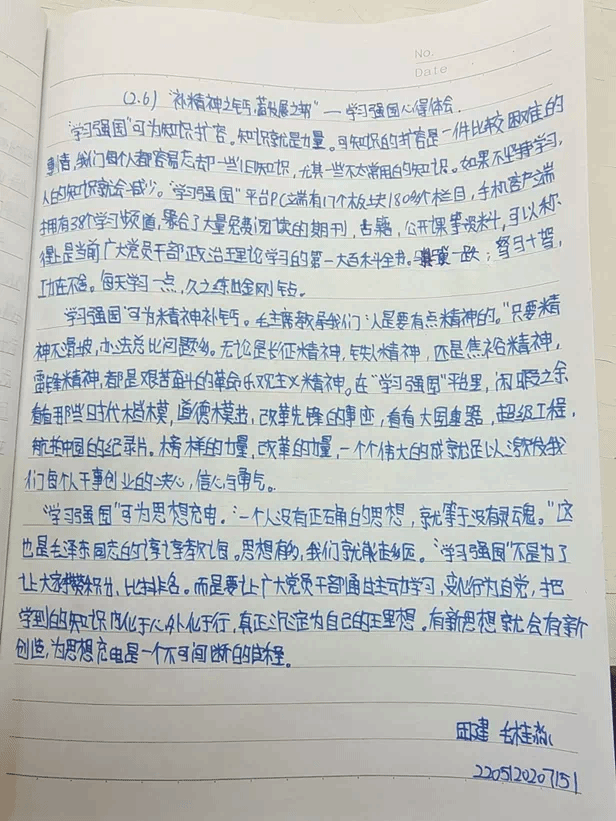 No.
Date
(2.6) "补精神之钙,蓄发展之势" — 学习强国心得体会.
"学习强国"可为知识扩容。知识就是力量。可知识的扩容是一件比较困难的
事情,我们每个人都容易忘却一些旧知识,尤其一些不太常用的知识。如果不坚持学习,
人的知识就会减少。"学习强国"平台PC端有17个板块180多个栏目,手机客户端
拥有38个学习频道,聚合了大量免费阅读的期刊,古籍,公开课等资料,可以称
得上是当前广大党员干部政治理论学习的第一大百科全书。骐骥一跃;驽马十驾,
功在不舍。每天学习一点,久之练出金刚钻。
学习强国"可为精神补钙。毛主席教导我们:人是要有点精神的。"只要精
神不滑坡,办法总比问题多。无论是长征精神,铁人精神,还是焦裕精神,
雷锋精神,都是艰苦奋斗的革命乐观主义精神。在"学习强国"平台里,闲暇之余
看看那些时代楷模,道德模范,改革先锋的事迹,看看大国重器,超级工程,
航拍中国的纪录片。榜样的力量,改革的力量,一个个伟大的成就足以激发我
们每个人干事创业的决心,信心与勇气。
"学习强国"可为思想充电。"一个人没有正确的思想,就等于没有灵魂。"这
也是毛泽东同志的谆谆教诲。思想有多远,我们就能走多远。"学习强国"不是为了
让大家攒积分、比排名。而是要让广大党员干部通过主动学习,变化行为自觉,把
学到的知识内化于心外化于行,真正沉淀为自己的理想。有新思想就会有新
创造,为思想充电是一个不可间断的过程。
田建 毛桂淼
2205120207151